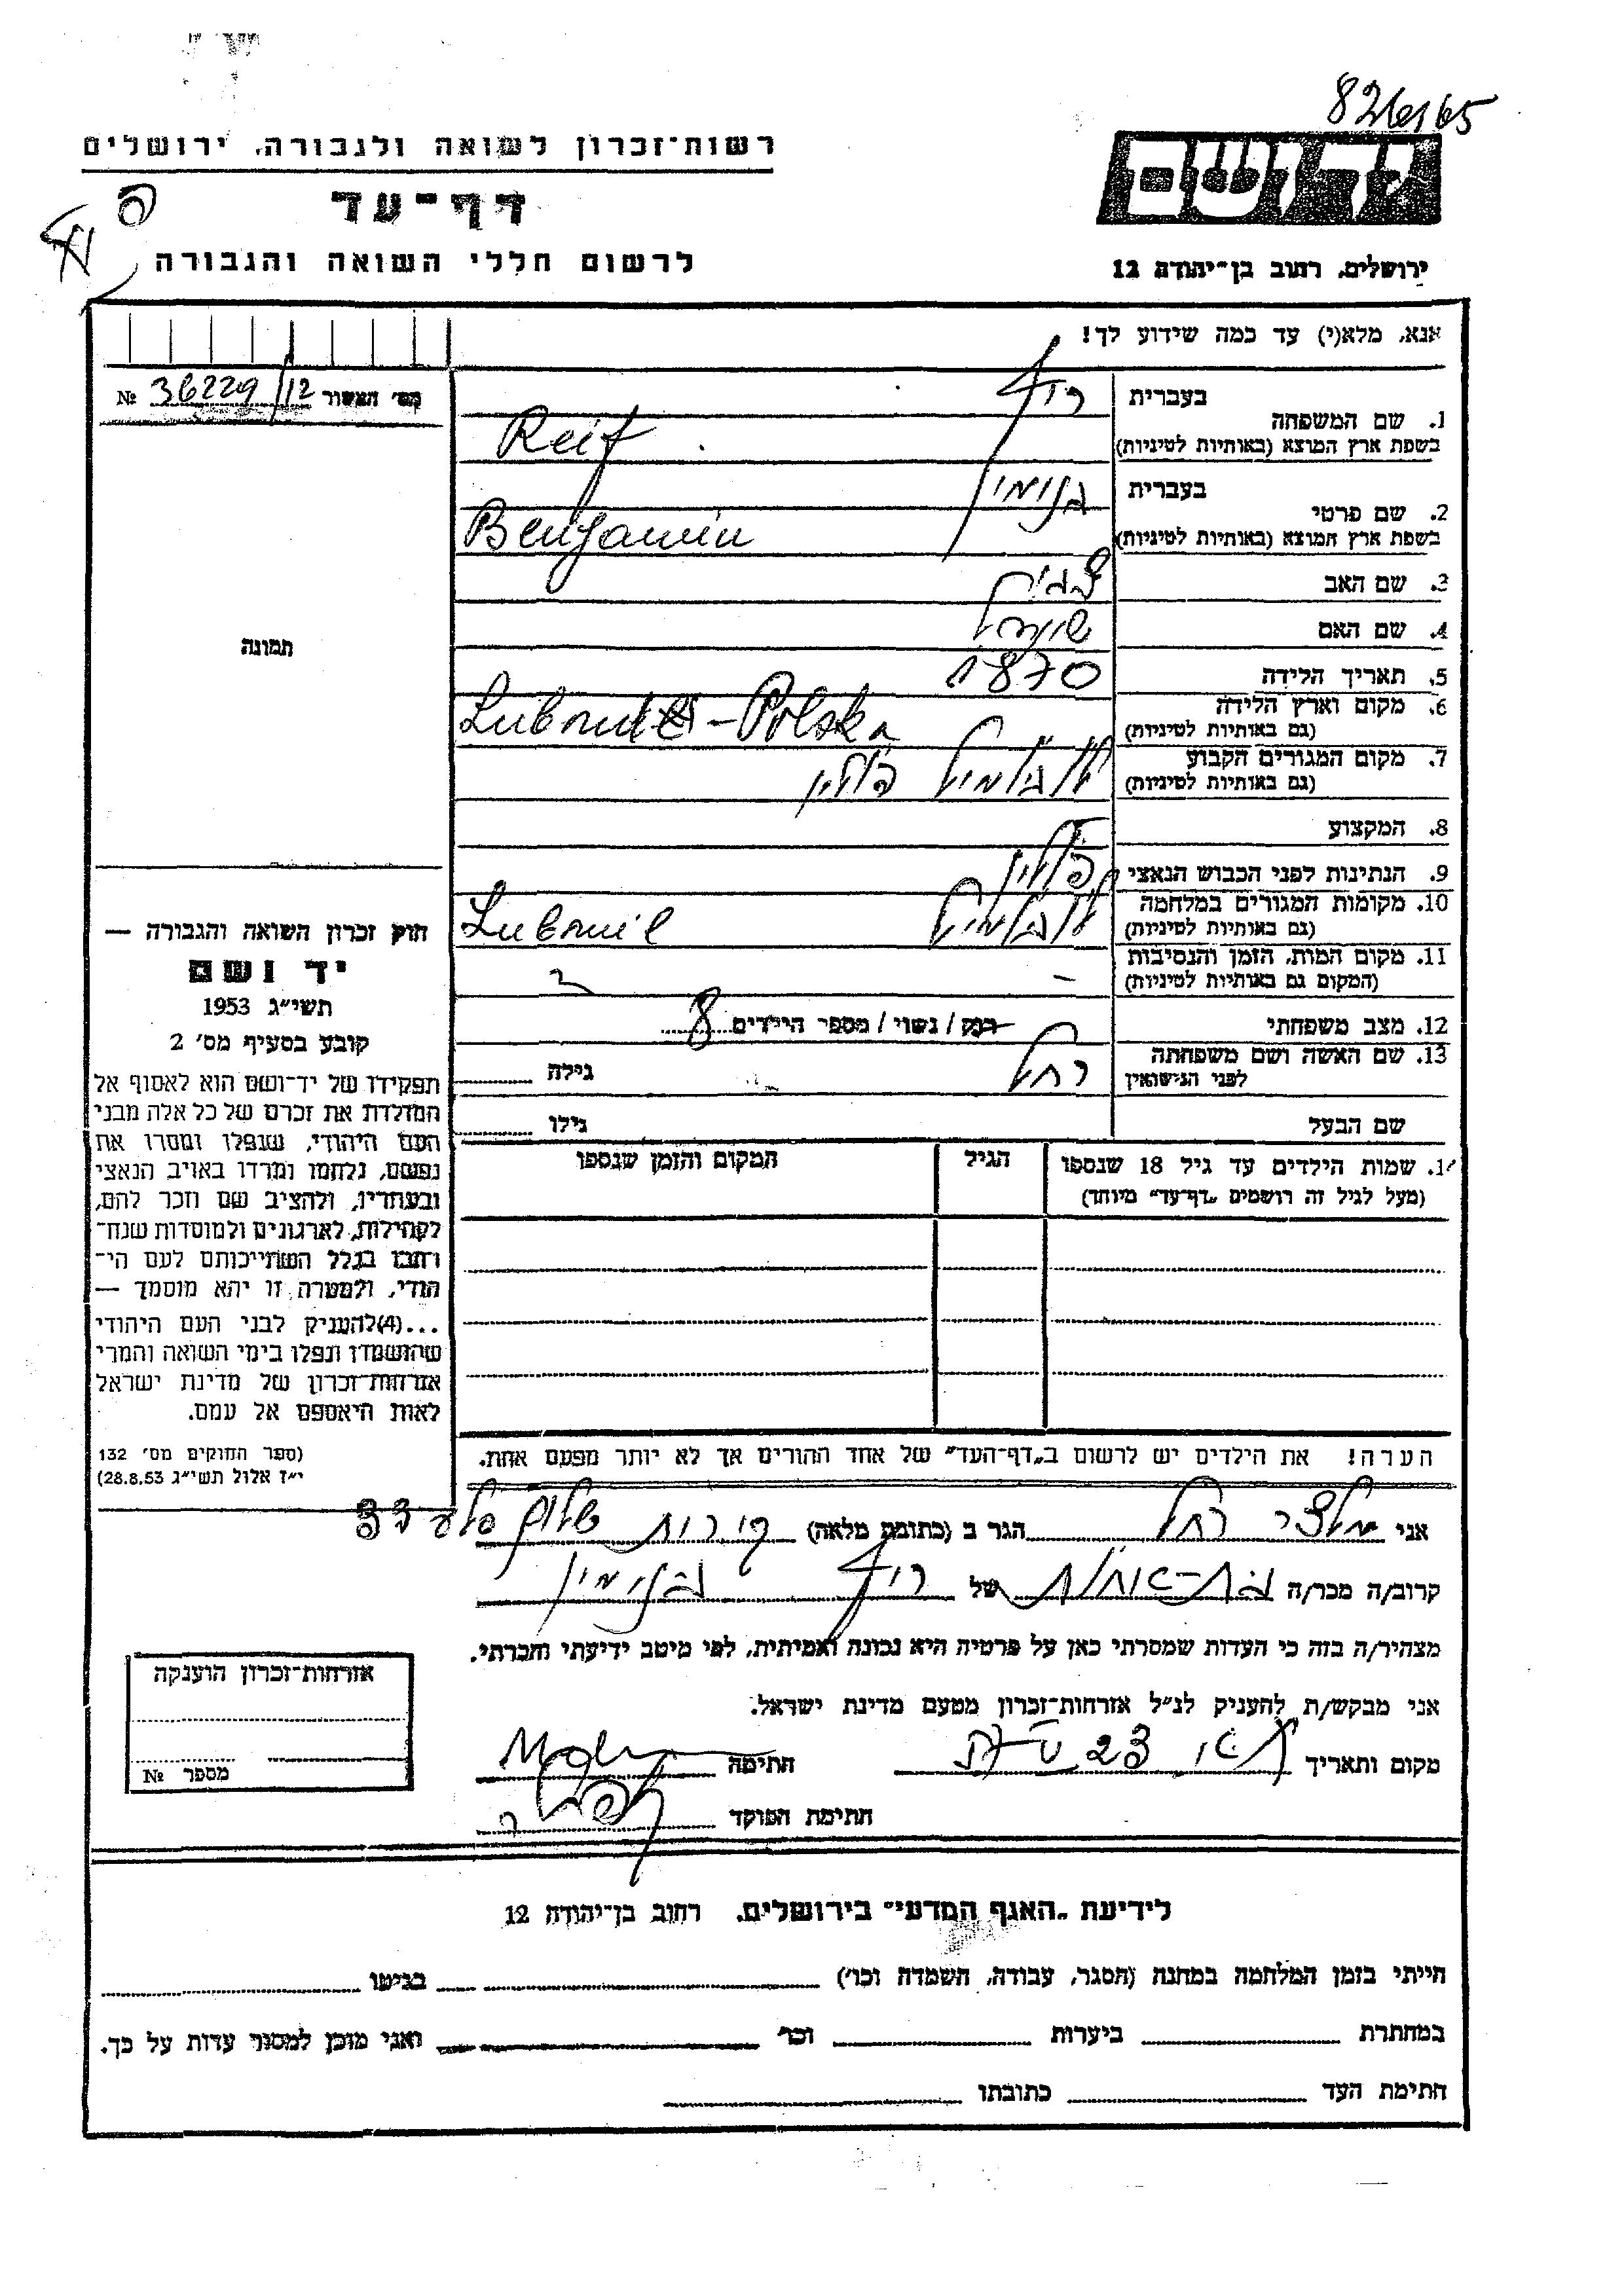 826165
רשות־זכרון לשואה ולגבורה, ירושלים
דף־עד
לרשום חללי השואה והגבורה
יד ושם
ירושלים, רחוב בן־יהודה 12
אנא, מלא(י) עד כמה שידוע לך!
מס׳ האשור № 36229/12
תמונה
1. שם המשפחה בעברית רייף
בשפת ארץ המוצא (באותיות לטיניות) Reif
2. שם פרטי בעברית בנימין
בשפת ארץ המוצא (באותיות לטיניות) Benjamin
3. שם האב
4. שם האם
5. תאריך הלידה 1870
6. מקום וארץ הלידה (גם באותיות לטיניות) - Polska
7. מקום המגורים הקבוע (גם באותיות לטיניות) פולין
8. המקצוע
9. הנתינות לפני הכבוש הנאצי פולין
10. מקומות המגורים במלחמה (גם באותיות לטיניות) Lubomil
11. מקום המות, הזמן והנסיבות (המקום גם באותיות לטיניות) –
12. מצב משפחתי רוק / נשוי / מספר הילדים 8
13. שם האשה ושם משפחתה לפני הנישואין רחל גילה
שם הבעל גילו
14. שמות הילדים עד גיל 18 שנספו (מעל לגיל זה רושמים „דף־עד״ מיוחד) הגיל המקום והזמן שנספו
הערה! את הילדים יש לרשום ב„דף־העד״ של אחד ההורים אך לא יותר מפעם אחת.
חוק זכרון השואה והגבורה —
יד ושם
תשי״ג 1953
קובע בסעיף מס׳ 2
תפקידו של יד־ושם הוא לאסוף אל
המולדת את זכרם של כל אלה מבני
העם היהודי, שנפלו ומסרו את
נפשם, נלחמו ומרדו באויב הנאצי
ובעוזריו, ולהציב שם וזכר להם,
לקהילות, לארגונים ולמוסדות שנח־
רבו בגלל השתייכותם לעם הי־
הודי, ולמטרה זו יהא מוסמך —
...(4)להעניק לבני העם היהודי
שהושמדו ונפלו בימי השואה והמרי
אזרחות־זכרון של מדינת ישראל
לאות היאספם אל עמם.
(ספר החוקים מס׳ 132
י״ז אלול תשי״ג 28.8.53)
אני רחל הגר ב (כתובת מלאה) קירות
קרוב/ה מכר/ה של רייף בנימין
מצהיר/ה בזה כי העדות שמסרתי כאן על פרטיה היא נכונה ואמיתית, לפי מיטב ידיעתי והכרתי.
אני מבקש/ת להעניק לנ״ל אזרחות־זכרון מטעם מדינת ישראל.
מקום ותאריך חתימה
חתימת הפוקד
אזרחות־זכרון הוענקה
מספר №
לידיעת „האגף המדעי״ בירושלים, רחוב בן־יהודה 12
הייתי בזמן המלחמה במחנה (הסגר, עבודה, השמדה וכו׳) בגיטו
במחתרת ביערות וכו׳ ואני מוכן למסור עדות על כך.
חתימת העד כתובתו